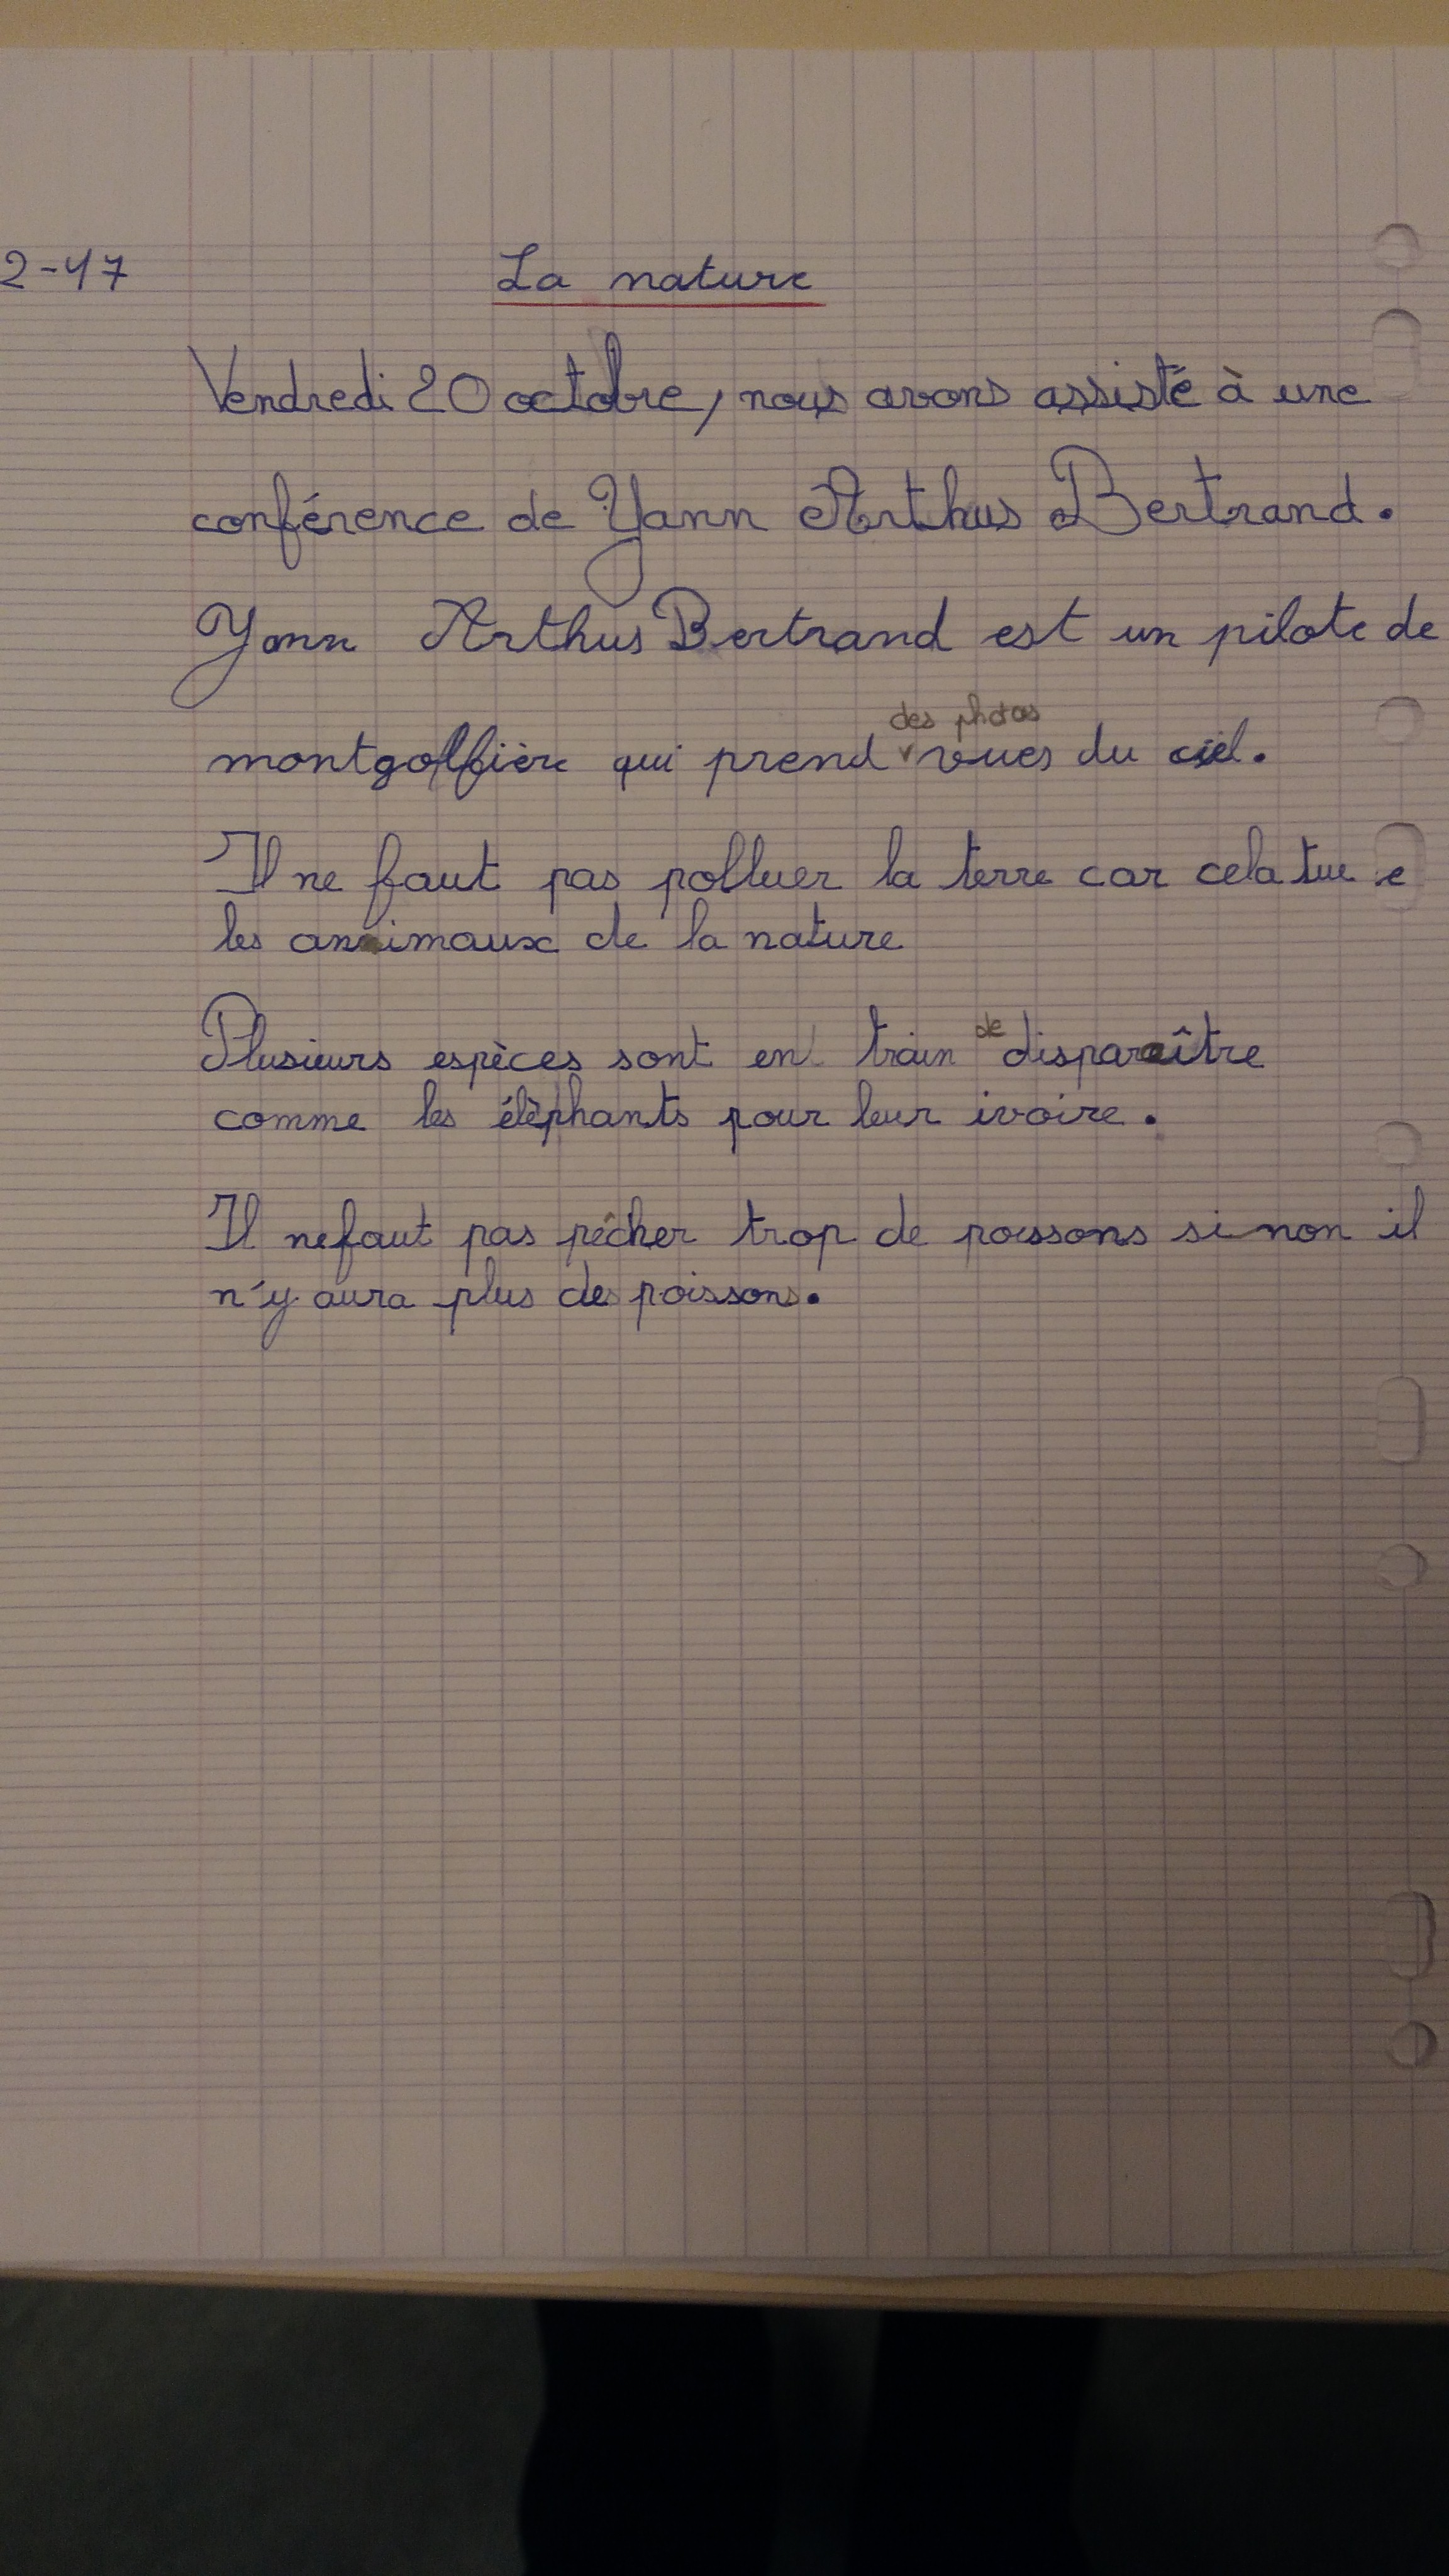 2-17
La nature
Vendredi 20 octobre, nous avons assisté à une
conférence de Yann Arthus Bertrand.
Yann Arthus Bertrand est un pilote de
des photos
montgolfière qui prend vues du ciel.
Il ne faut pas polluer la terre car cela tue e
les animaux de la nature
de
Plusieurs espèces sont en train disparaître
comme les éléphants pour leur ivoire.
Il ne faut pas pêcher trop de poissons si non il
n'y aura plus de poissons.